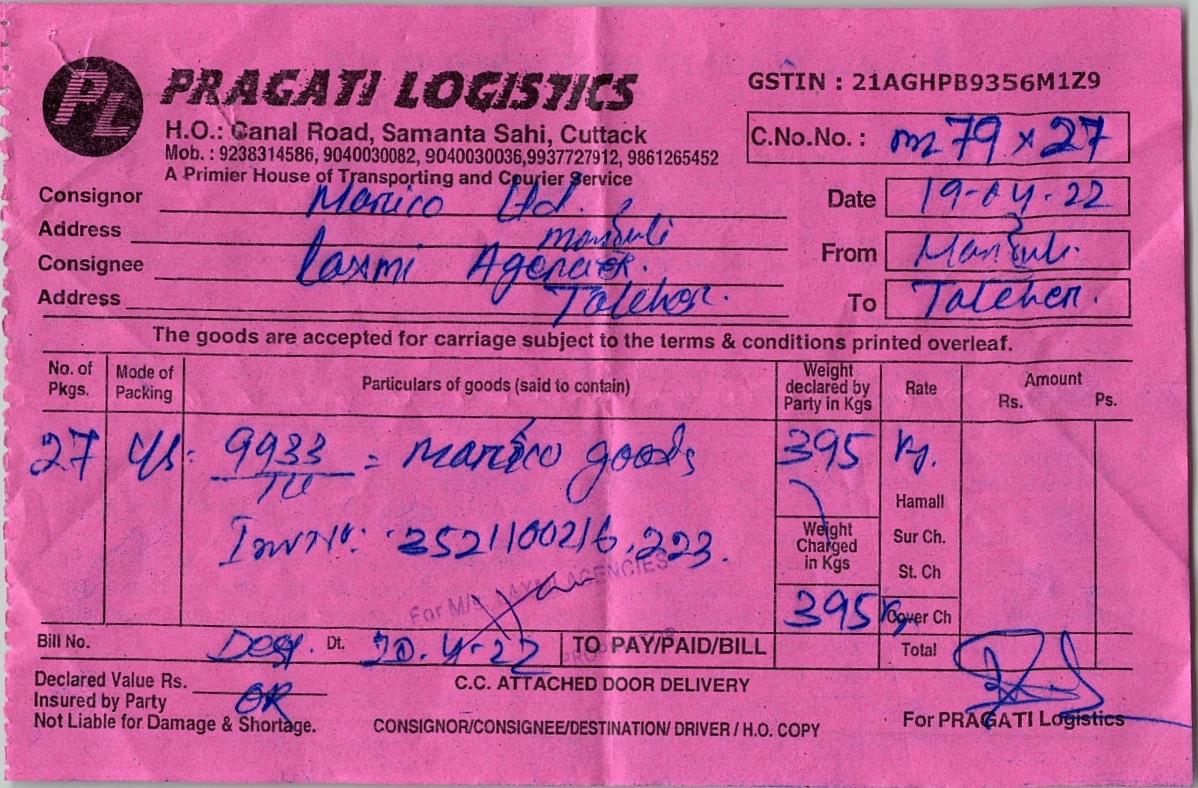 PL PRAGATI LOGISTICS
GSTIN : 21AGHPB9356M1Z9
H.O.: Canal Road, Samanta Sahi, Cuttack
Mob. : 9238314586, 9040030082, 9040030036,9937727912, 9861265452
A Primier House of Transporting and Courier Service
C.No.No. : m 79 x 27
Consignor Marico Ltd.
Date 19-04-22
Address Manguli
From Manguli
Consignee Laxmi Agencies.
Address Talcher.
To Talcher.
The goods are accepted for carriage subject to the terms & conditions printed overleaf.
No. of Pkgs. Mode of Packing Particulars of goods (said to contain) Weight declared by Party in Kgs Rate Amount Rs. Ps.
27 9933 = Marico goods 395 Kg.
Hamall
Inv No: 3521100216, 223.
Weight Charged in Kgs
Sur Ch.
St. Ch
For M/s LAXMI AGENCIES
395 Kg
Cover Ch
Bill No. Desp. Dt. 20.4.22 TO PAY/PAID/BILL Total
Declared Value Rs. OR
C.C. ATTACHED DOOR DELIVERY
Insured by Party
Not Liable for Damage & Shortage.
CONSIGNOR/CONSIGNEE/DESTINATION/ DRIVER / H.O. COPY
For PRAGATI Logistics